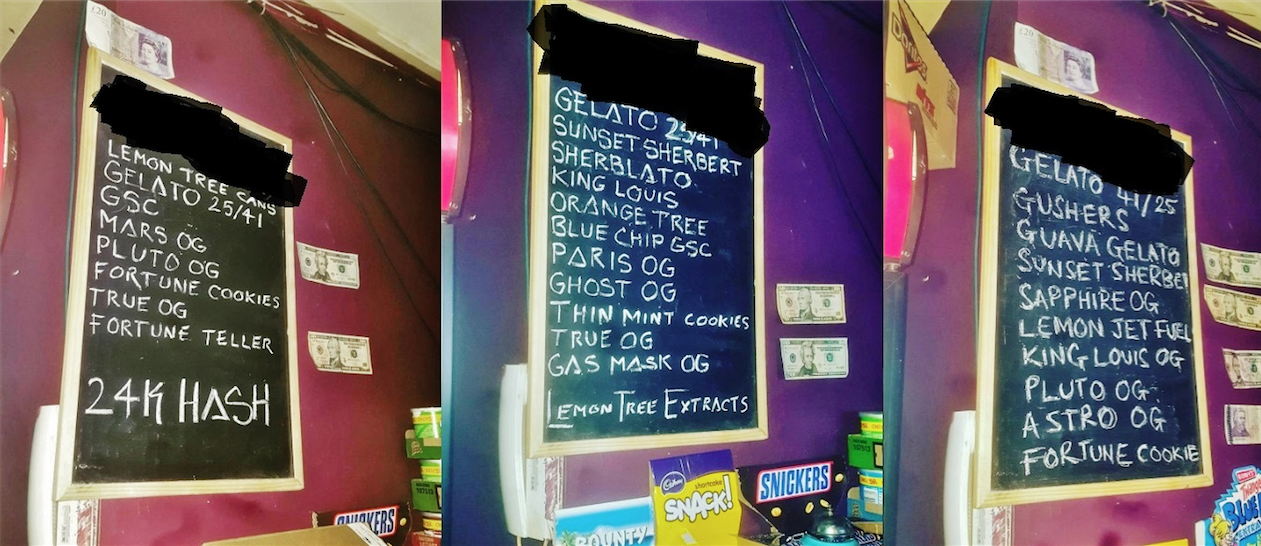 £20
LEMON TREE CANS
GELATO 25/41
GSC
MARS OG
PLUTO OG
FORTUNE COOKIES
TRUE OG
FORTUNE TELLER
24K HASH
SNICKERS
GELATO 25/41
SUNSET SHERBERT
SHERBLATO
KING LOUIS
ORANGE TREE
BLUE CHIP GSC
PARIS OG
GHOST OG
THIN MINT COOKIES
TRUE OG
GAS MASK OG
LEMON TREE EXTRACTS
Cadbury
shortcake
SNACK!
SNICKERS
BOUNTY
Doritos
£20
GELATO 41/25
GUSHERS
GUAVA GELATO
SUNSET SHERBE
SAPPHIRE OG
LEMON JET FUEL
KING LOUIS OG
PLUTO OG
ASTRO OG
FORTUNE COOKIE